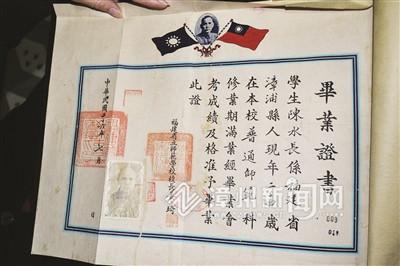 畢業證書
學生陳水長係福建省
漳浦縣人現年二歲
在本校普通師範科
修業期滿業經畢業會
考成績及格准予畢業
此證
校長
中華民國年七月日
漳州新闻网